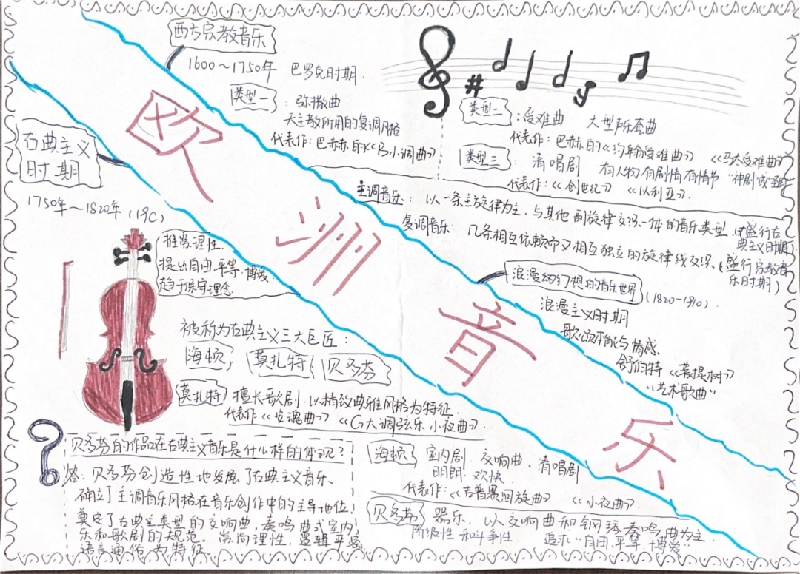 西方宗教音乐
1600～1750年 巴罗克时期.
类型一：弥撒曲
天主教所用的复调风格
代表作：巴赫《b小调曲》
类型二：受难曲 大型声乐套曲
代表作：巴赫的《约翰受难曲》《马太受难曲》
类型三 清唱剧 有人物有剧情有情节
代表作：《创世纪》《以利亚》
主调音乐：以一条主旋律为主，与其他副旋律交织一体的音乐类型
复调音乐：几条相互依赖而又相互独立的旋律线交织
欧洲音乐
古典主义时期
1750年～1820年（19C）
推崇理性
提出自由、平等、博爱
趋于保守理念
被称为古典主义三大巨匠：
海顿，莫扎特，贝多芬
莫扎特 擅长歌剧 以精致典雅风格为特征
代表作《安魂曲》《G大调弦乐小夜曲》
浪漫幻想的音乐世界（1820-1910）
浪漫主义时期
歌曲 情感
舒伯特《菩提树》
"艺术歌曲"
贝多芬的作品在古典主义音乐是什么样的体现？
答：贝多芬创造性地发展了古典主义音乐.
确立了主调音乐风格在音乐创作中的主导地位，
奠定了古典主义类型的交响曲，奏鸣曲式室内
乐和歌剧的规范. 崇尚理性，逻辑
海顿 室内剧 交响曲，清唱剧
明朗 欢快
代表作：《吉普赛回旋曲》《小夜曲》
贝多芬 器乐，以交响曲和钢琴奏鸣曲为主.
阶级性 和斗争性 追求"自由 平等 博爱"